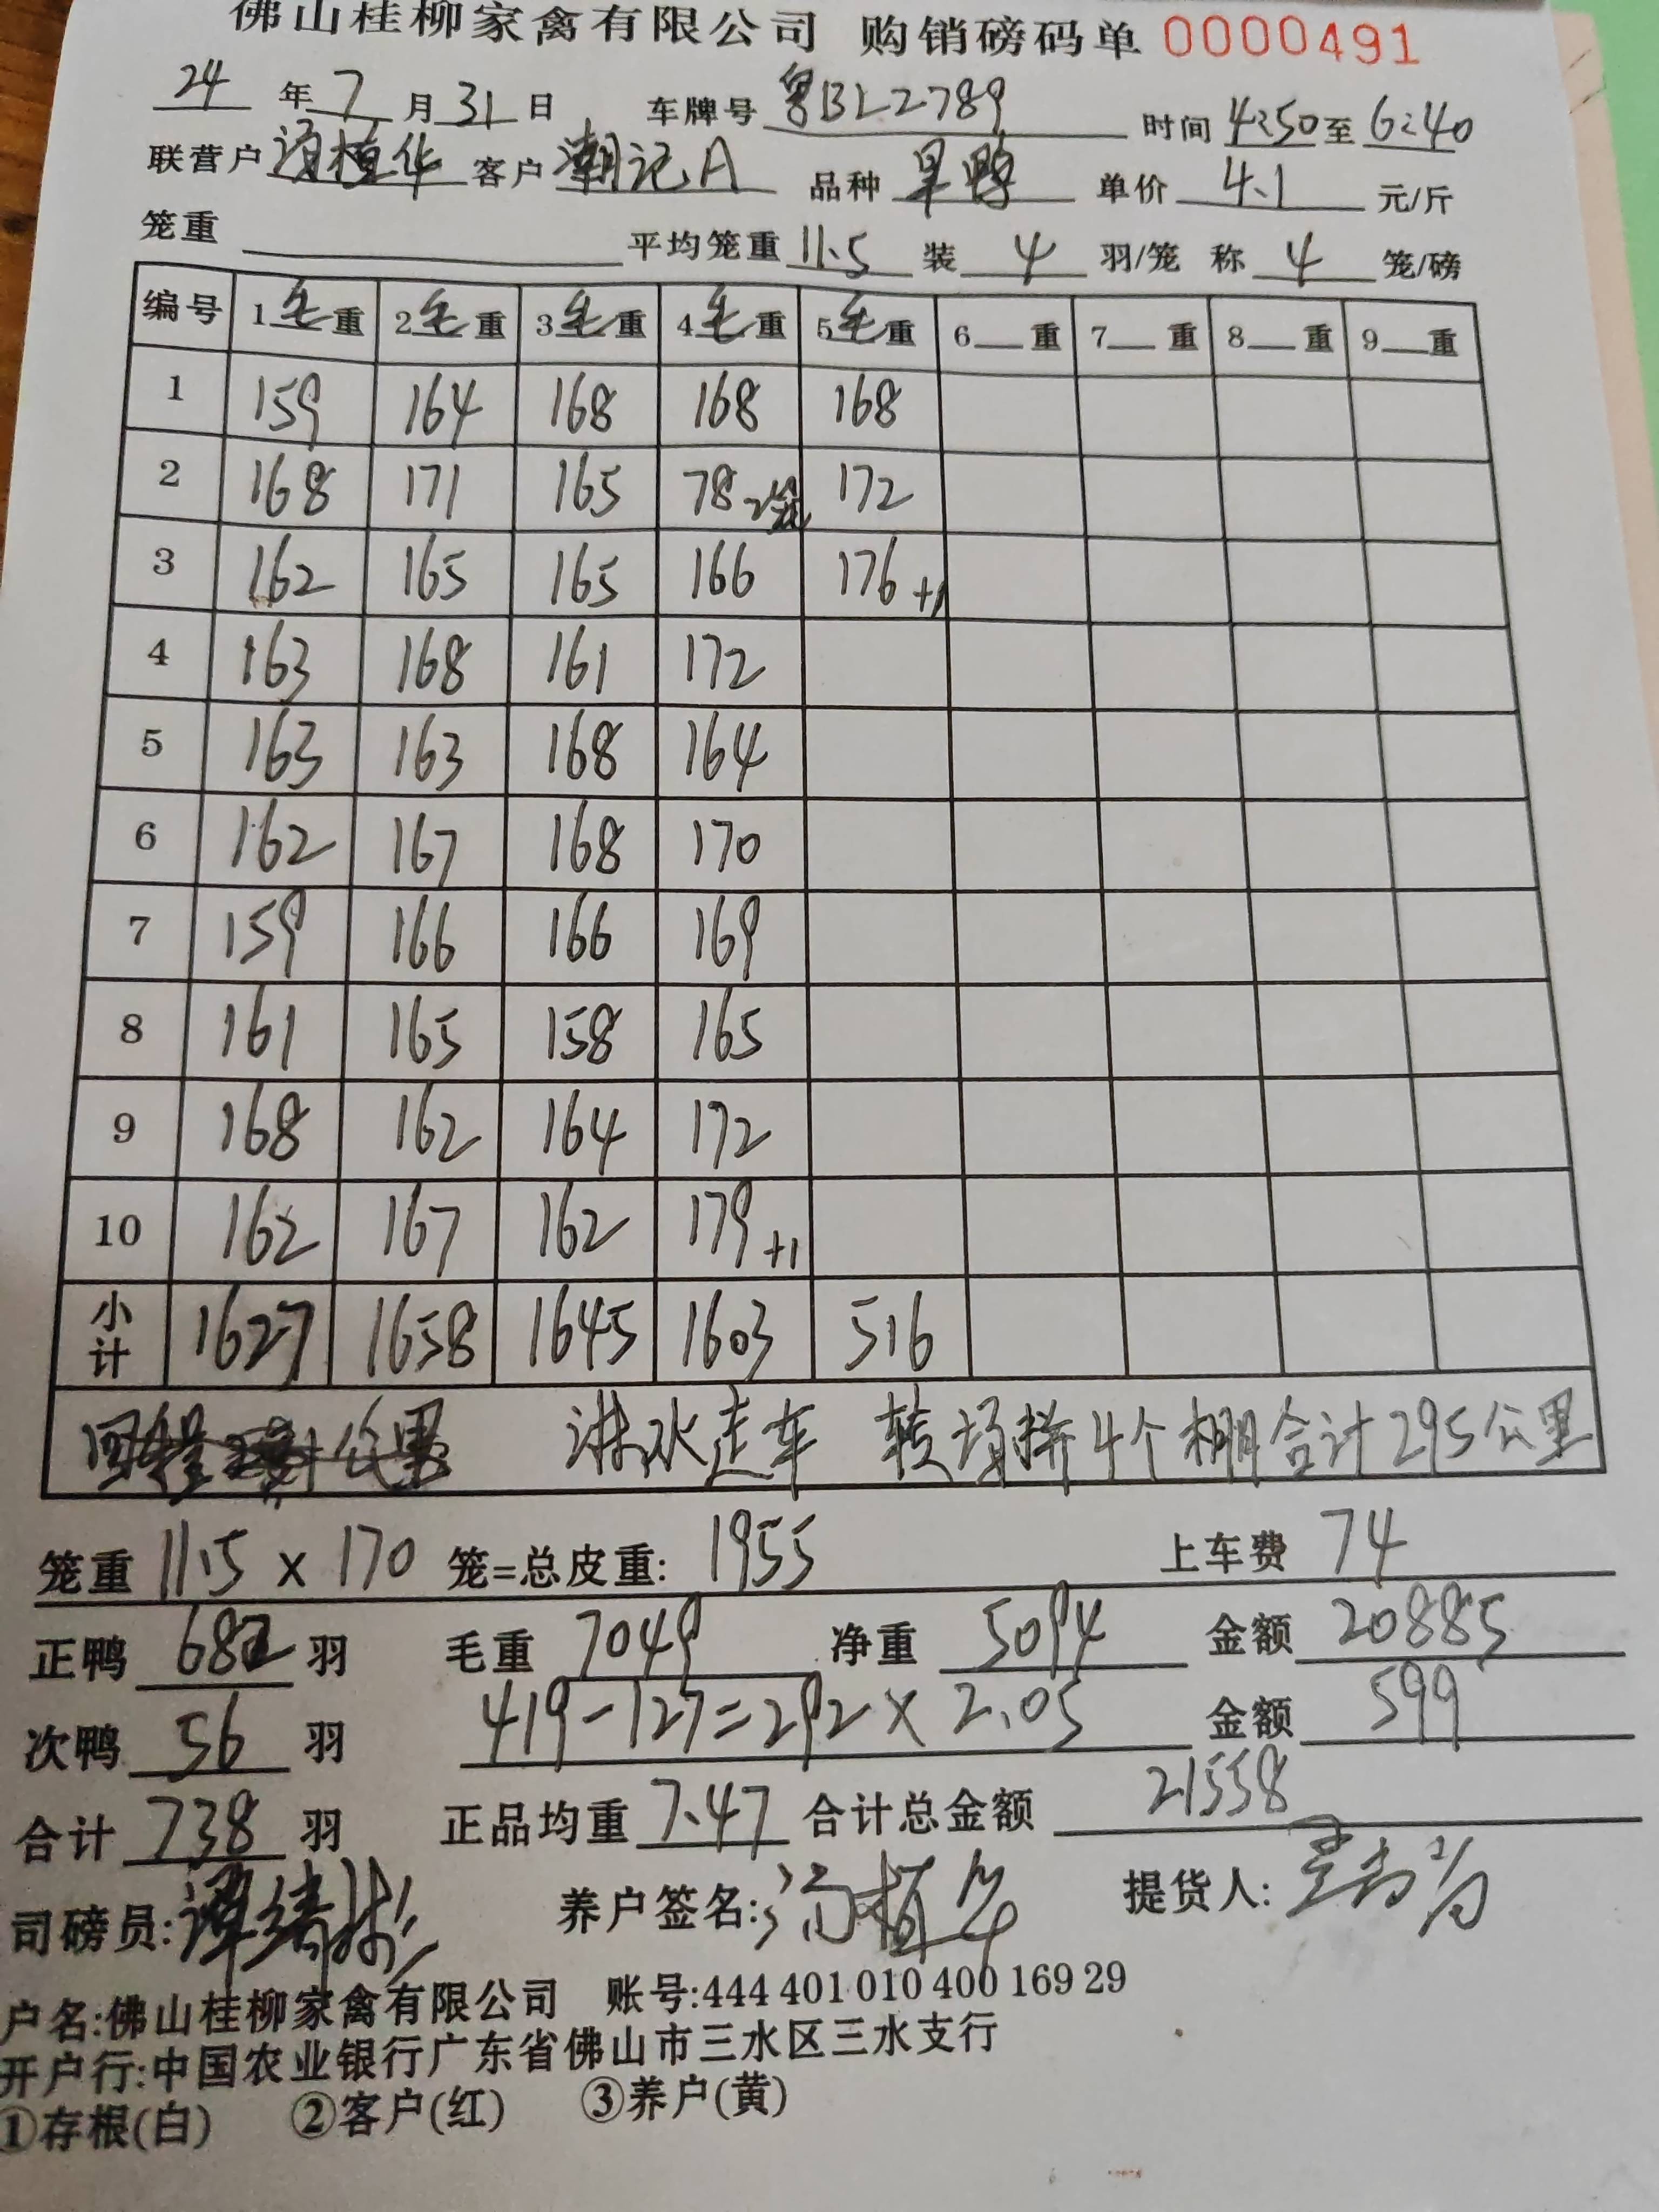 佛山桂柳家禽有限公司 购销磅码单 0000491
24 年 7 月 31 日 车牌号 粤BL2789 时间 4:50 至 6:40
联营户 植华 客户 潮记A 品种 旱鸭 单价 4.1 元/斤
笼重 平均笼重 11.5 装 4 羽/笼 称 4 笼/磅
编号 1毛重 2毛重 3毛重 4毛重 5毛重 6__重 7__重 8__重 9__重
1 159 164 168 168 168
2 168 171 165 78 2笼 172
3 162 165 165 166 176 +1
4 163 168 161 172
5 163 163 168 164
6 162 167 168 170
7 159 166 166 169
8 161 165 158 165
9 168 162 164 172
10 162 167 162 179 +1
小计 1627 1658 1645 1603 516
淋水走车 转场拼4个棚合计295公里
笼重 11.5 × 170 笼=总皮重: 1955 上车费 74
正鸭 682 羽 毛重 7049 净重 5094 金额 20885
次鸭 56 羽 419-127=292×2.05 金额 599
合计 738 羽 正品均重 7.47 合计总金额 21558
司磅员: 养户签名: 提货人:
户名:佛山桂柳家禽有限公司 账号:444 401 010 400 169 29
开户行:中国农业银行广东省佛山市三水区三水支行
①存根(白) ②客户(红) ③养户(黄)